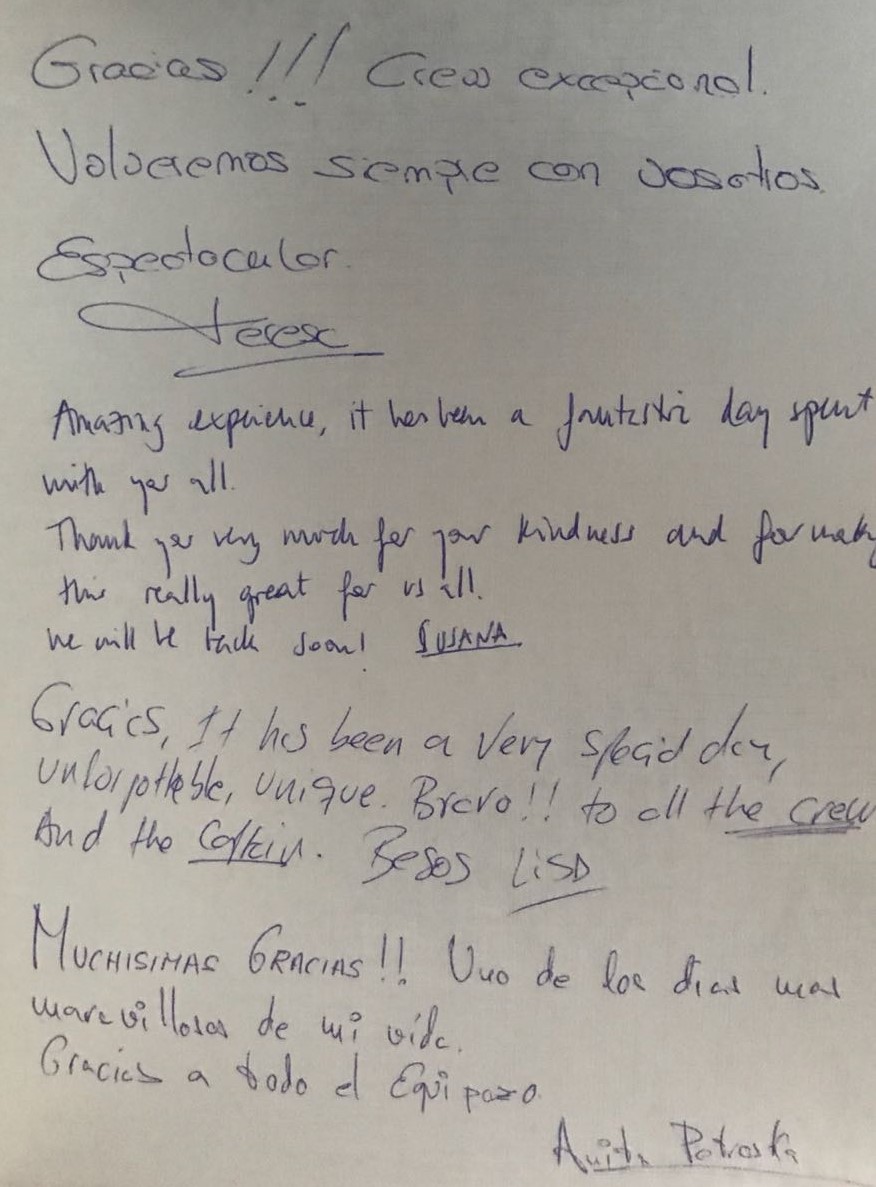 Gracias!!! Crew excepcional.
Volveremos siempre con vosotros.
Espectacular.
Teresa
Amazing experience, it has been a fantastic day spent
with you all.
Thank you very much for your kindness and for making
this really great for us all.
we will be back soon! SUSANA.
Gracias, It has been a very special day,
unforgottable, unique. Bravo!! to all the crew
And the Coptain. Besos LiSA
MUCHISIMAS GRACIAS!! Uno de los dias mas
maravillosos de mi vida.
Gracias a todo el Equipazo.
Anita